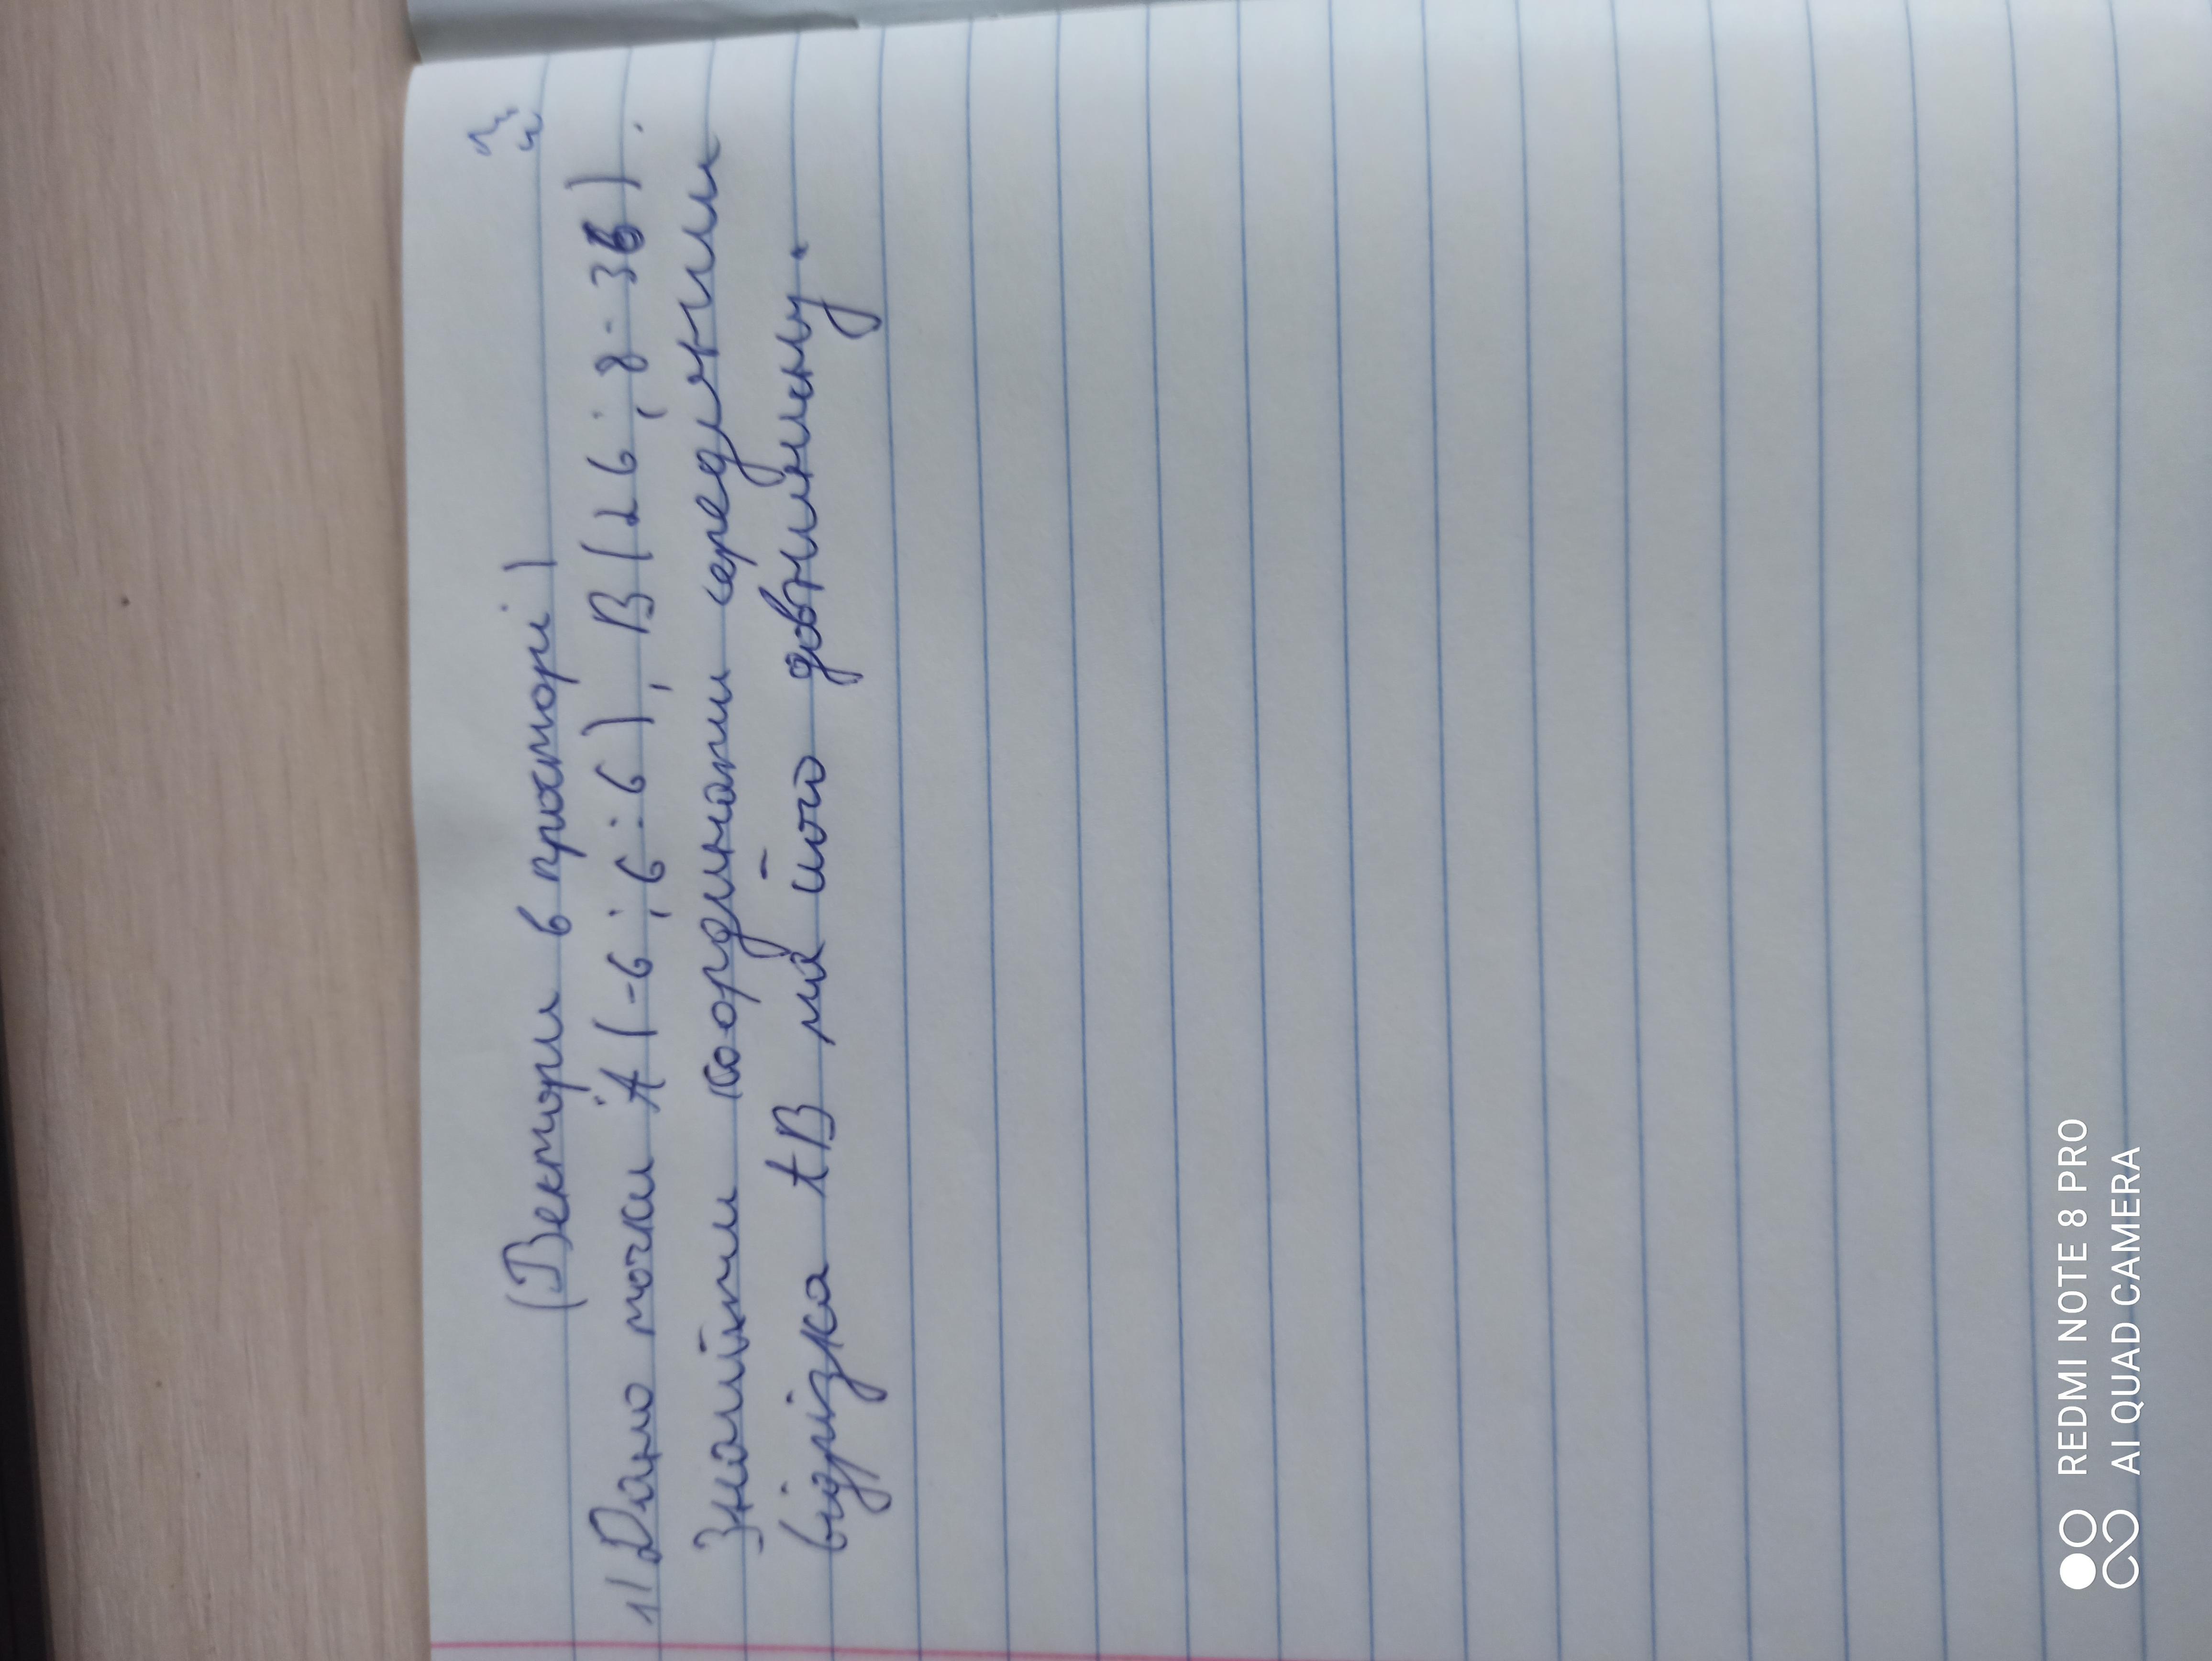 (Вектори в просторі)
1) Дано точки A (-6 ; 6 ; 6), B (26 ; 8 - 36).
Знайти координати середини
відрізка AB та його довжину.
REDMI NOTE 8 PRO
AI QUAD CAMERA